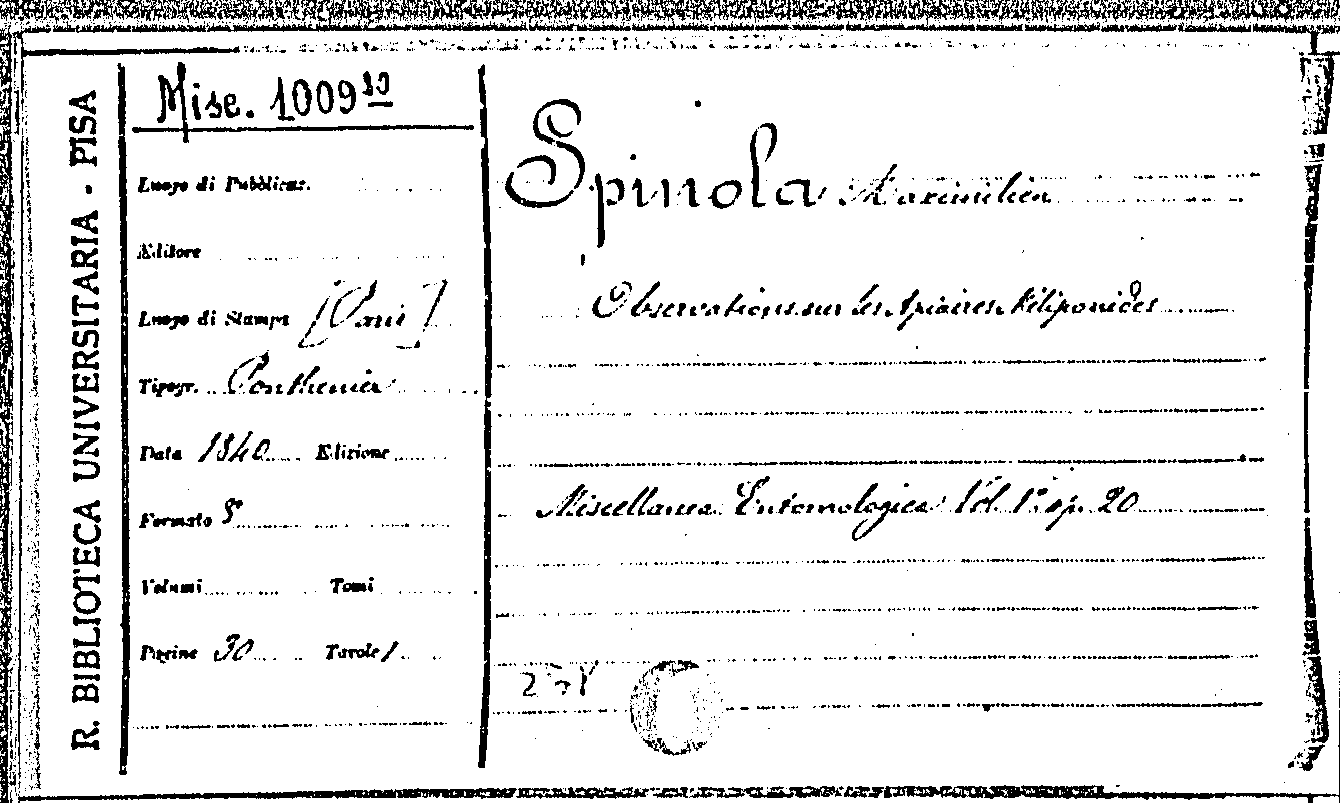 R. BIBLIOTECA UNIVERSITARIA - PISA
Misc. 1009
Luogo di Pubblicaz.
Editore
Luogo di Stampa [Paris]
Tipogr. Ponthenier
Data 1840 Edizione
Formato 8°
Volumi Tomi
Pagine 30 Tavole 1
Spinola Maximilien
Observations sur les Apiaires Méliponides
Miscellanea Entomologica Vol. 1° op. 20